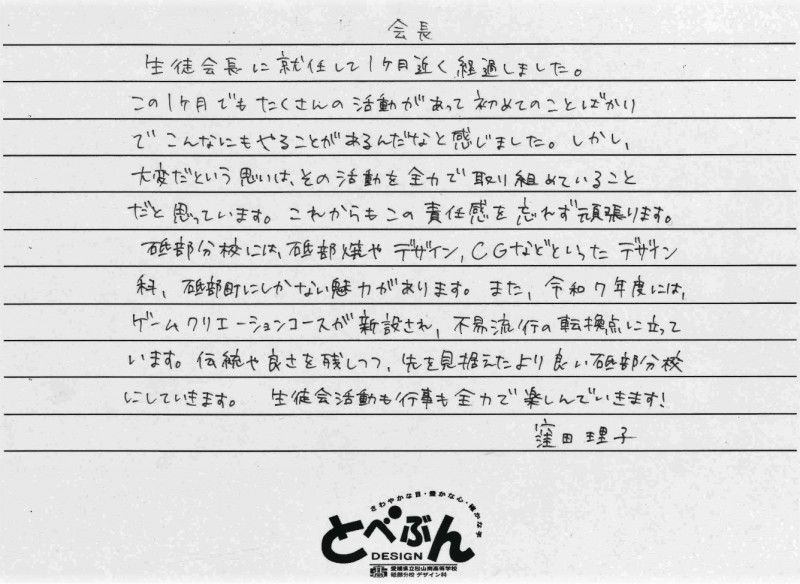 会長
生徒会長に就任して1ヶ月近く経過しました。
この1ヶ月でもたくさんの活動があって初めてのことばかり
でこんなにもやることがあるんだなと感じました。しかし、
大変だという思いは、その活動を全力で取り組めていること
だと思っています。これからもこの責任感を忘れず頑張ります。
砥部分校には、砥部焼やデザイン,CGなどといったデザイン
科、砥部町にしかない魅力があります。また、令和7年度には、
ゲームクリエーションコースが新設され、不易流行の転換点に立って
います。伝統や良さを残しつつ、先を見据えたより良い砥部分校
にしていきます。 生徒会活動も行事も全力で楽しんでいきます!
窪田理子
さわやかな目・豊かな心・確かな手
とべぶん
DESIGN
愛媛県立松山南高等学校
砥部分校 デザイン科